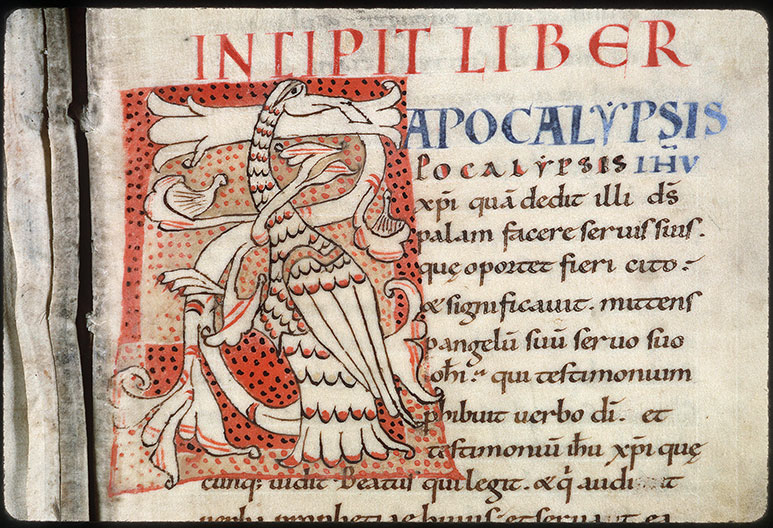 INCIPIT LIBER
APOCALYPSIS
POCALYPSIS IHV
xp̄i quā dedit illi d̄s
palam facere seruis suis.
quę oportet fieri cito:
& significauit. mittens
p angelū suū seruo suo
ioh̄i. qui testimonium
phibuit uerbo d̄i. et
testimoniū ih̄u xp̄i quę
cunq; uidit. Beatus qui legit. & q̄ audi t
uerba prophetiae huius: et seruat ea